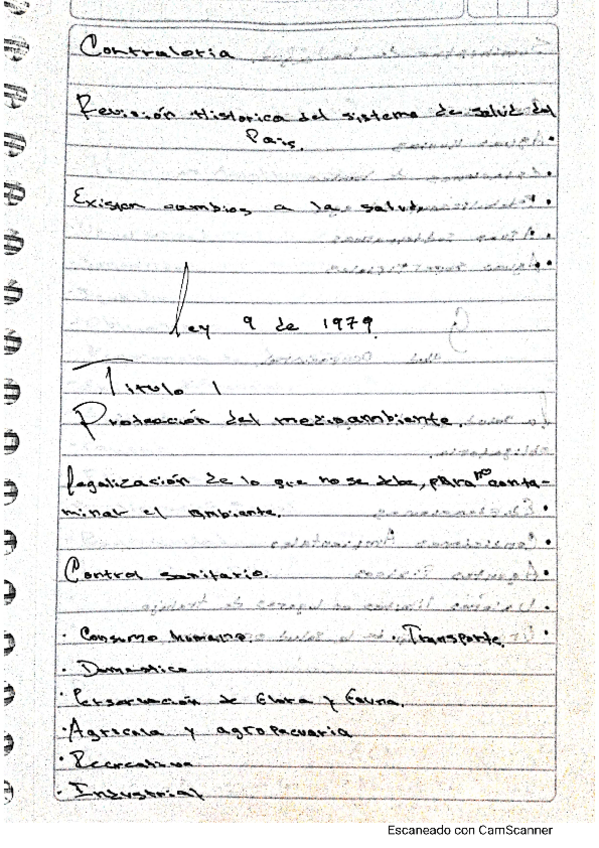 Contraloria
Revisión Historica del sistema de salud del
Pais.
Existen cambios a la salud.
Ley 9 de 1979.
Titulo 1
Protección del medioambiente.
Legalización de lo que no se debe, para no conta-
minar el ambiente.
Control sanitario.
· Consumo humano · Transporte.
· Domestico
· Perservación de Flora y Fauna.
· Agricola y agropecuaria
· Recreativa
· Industrial
Escaneado con CamScanner